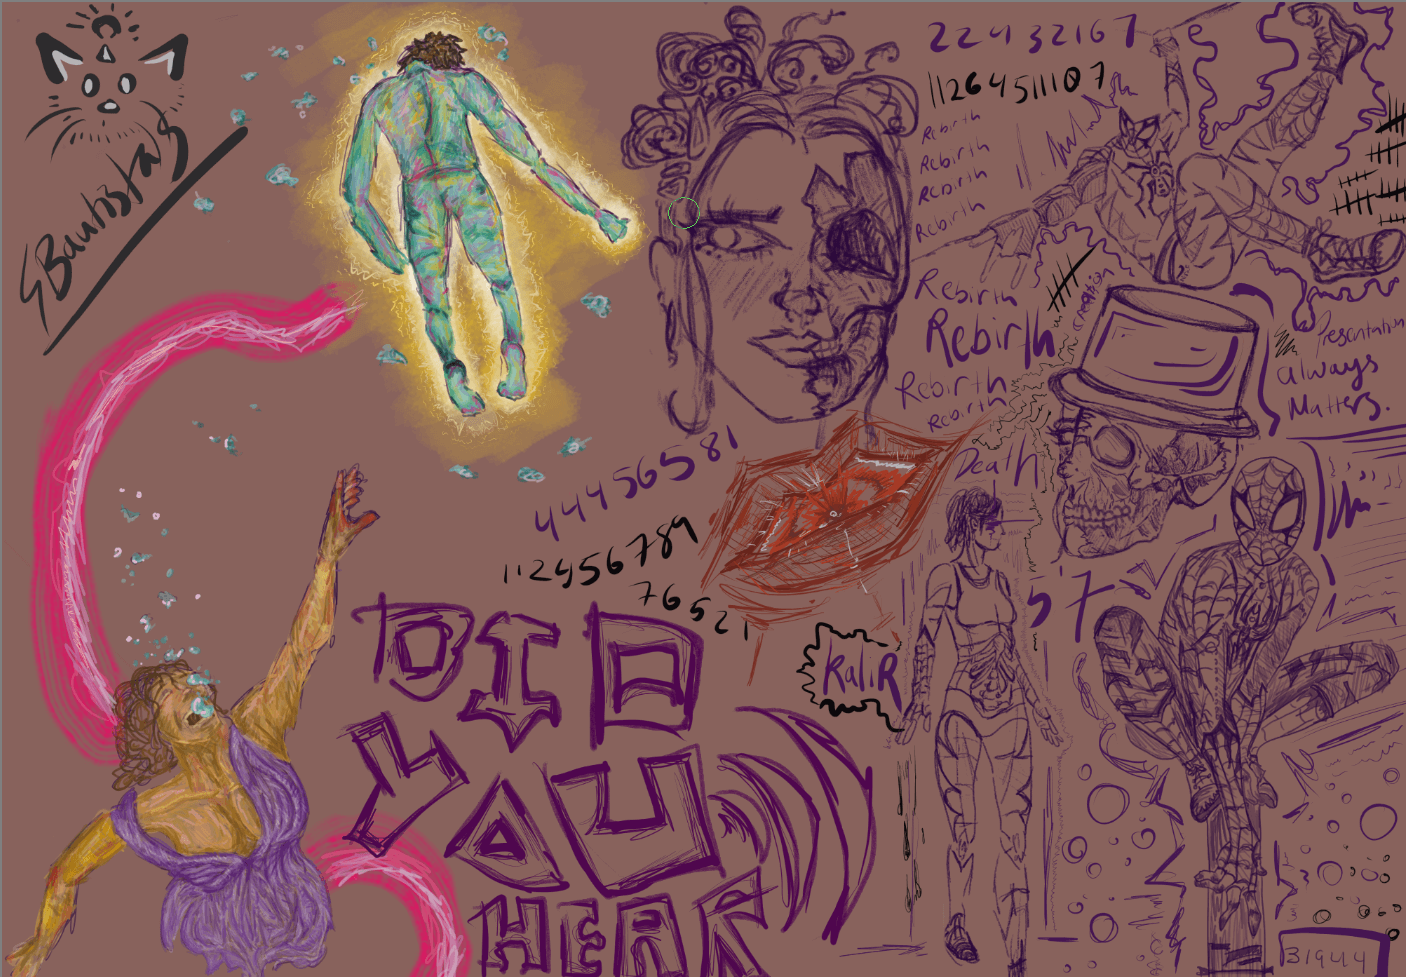 SBautista
22432167
11264511107
Rebirth
Rebirth
Rebirth
Rebirth
Rebirth
Rebirth
Rebirth
Rebirth
creation
Presentation
always
Matters.
Death
44456581
112456789
76521
RaliR
57
DID
YOU
HEAR
31944